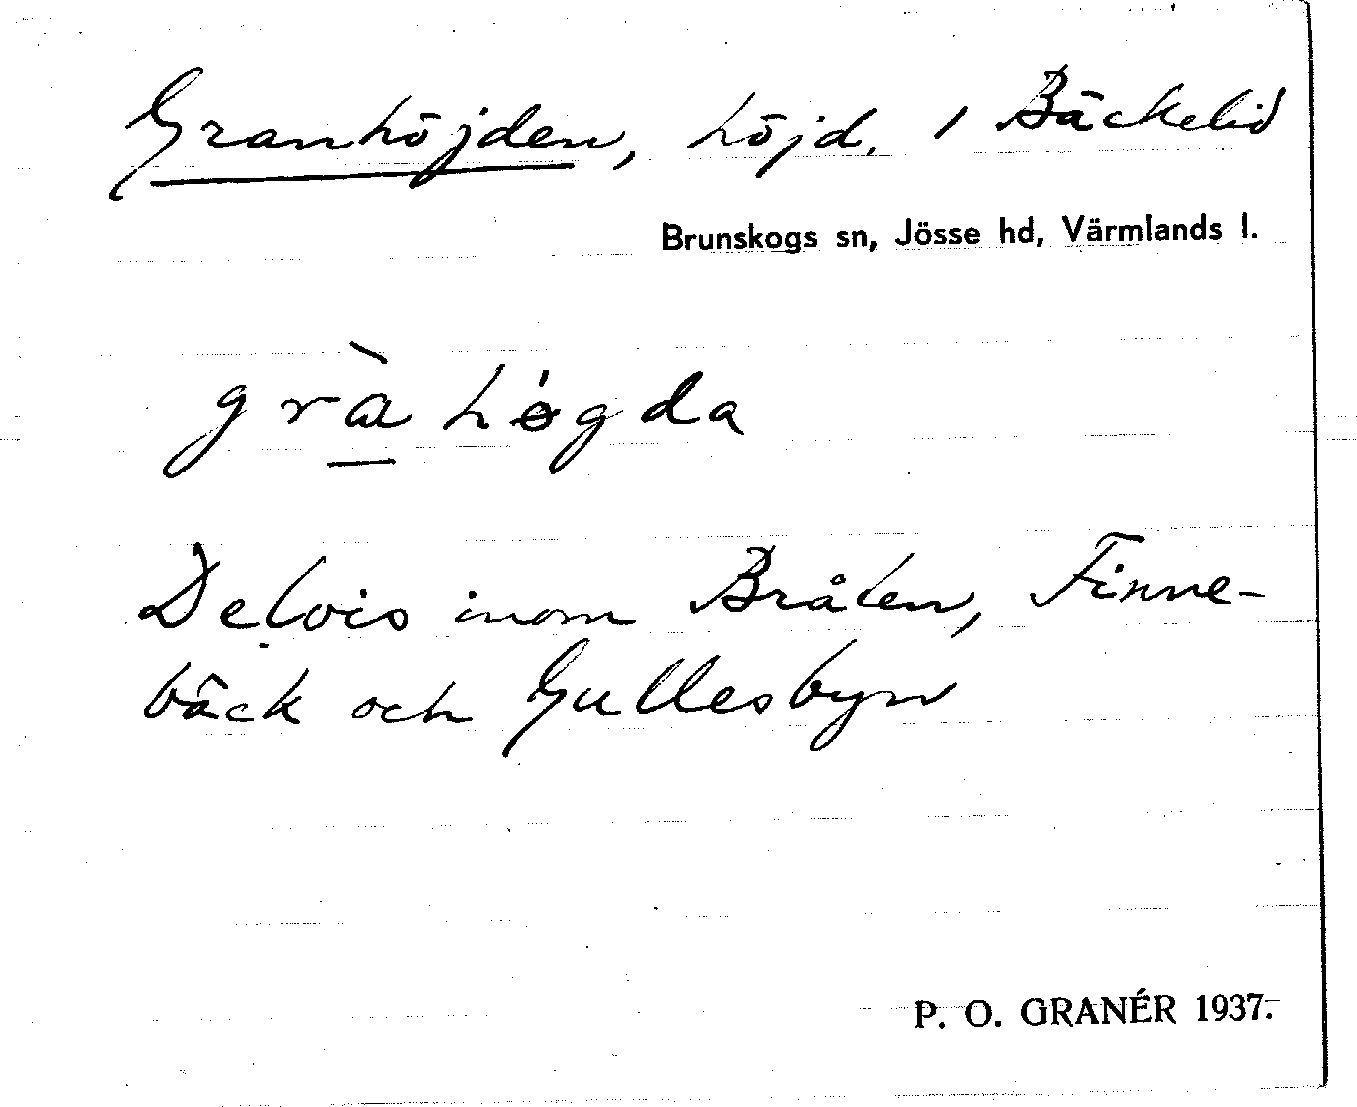 Granhöjden, höjd. 1 Bäckelid
Brunskogs sn, Jösse hd, Värmlands l.
grà hǿgda
Delvis inom Bråten, Finne-
bäck och Gullesbyn
P. O. GRANÉR 1937.